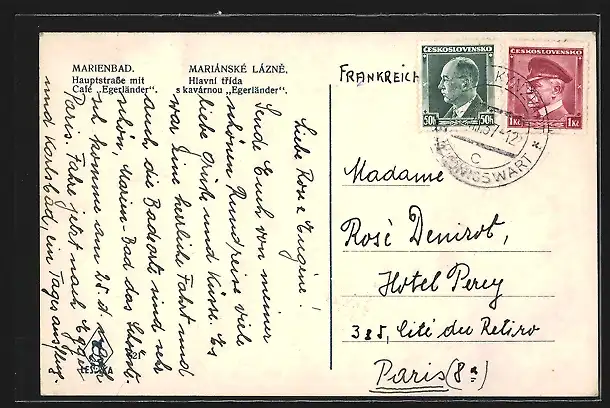 MARIENBAD.
Hauptstraße mit
Café „Egerländer“.
MARIÁNSKÉ LÁZNĚ.
Hlavní třída
s kavárnou „Egerländer“.
Liebe Rose Eugène!
Sende Euch von meiner
schönen Rundreise viele
liebe Grüße und Küsse. Es
war eine herrliche Fahrt und
auch die Badeorte sind sehr
schön, Marien-Bad das Schönste.
Ich komme am 25. d. nach
Paris. Fahre jetzt nach Eger
und Karlsbad, ein Tagesausflug.
FRANKREICH
ČESKOSLOVENSKO
50h 50h
ČESKOSLOVENSKO
1Kč 1Kč
37-12
C
KÖNIGSWART
Madame
Rosé Denirob,
Hotel Percy
325, Cité du Retiro
Paris (8e)